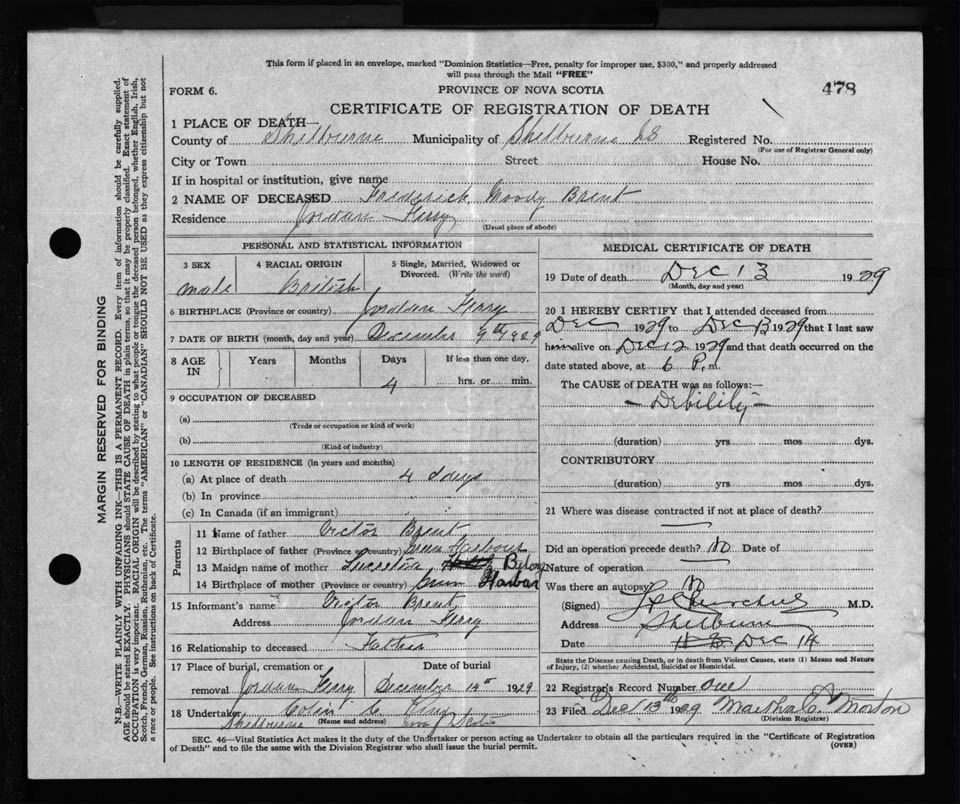 This form if placed in an envelope, marked "Dominion Statistics—Free, penalty for improper use, $300," and properly addressed
will pass through the Mail "FREE"
FORM 6.
PROVINCE OF NOVA SCOTIA
478
CERTIFICATE OF REGISTRATION OF DEATH
1 PLACE OF DEATH
County of Shelburne Municipality of Shelburne Registered No.
(For use of Registrar General only)
City or Town Street House No.
If in hospital or institution, give name
2 NAME OF DECEASED Frederick Moody Brent
Residence Jordan Ferry
(Usual place of abode)
PERSONAL AND STATISTICAL INFORMATION
3 SEX 4 RACIAL ORIGIN 5 Single, Married, Widowed or
Divorced. (Write the word)
male British
6 BIRTHPLACE (Province or country) Jordan Ferry
7 DATE OF BIRTH (month, day and year) December 9th 1929
8 AGE IN Years Months Days If less than one day,
4 hrs. or min.
9 OCCUPATION OF DECEASED
(a)
(Trade or occupation or kind of work)
(b)
(Kind of industry)
10 LENGTH OF RESIDENCE (in years and months)
(a) At place of death 4 days
(b) In province
(c) In Canada (if an immigrant)
Parents
11 Name of father Victor Brent
12 Birthplace of father (Province or country) Harbour
13 Maiden name of mother Lucretia
14 Birthplace of mother (Province or country) Harbour
15 Informant's name Victor Brent
Address Jordan Ferry
16 Relationship to deceased Father
17 Place of burial, cremation or Date of burial
removal Jordan Ferry December 14th 1929
18 Undertaker Colin
(Name and address)
Shelburne Nova Scotia
MEDICAL CERTIFICATE OF DEATH
19 Date of death Dec 13 1929
(Month, day and year)
20 I HEREBY CERTIFY that I attended deceased from
Dec 1929 to Dec 13 1929 that I last saw
him alive on Dec 12 1929 and that death occurred on the
date stated above, at 6 P. m.
The CAUSE of DEATH was as follows:—
Debility
(duration) yrs mos dys.
CONTRIBUTORY
(duration) yrs mos dys.
21 Where was disease contracted if not at place of death?
Did an operation precede death? No Date of
Nature of operation
Was there an autopsy? No
(Signed) M.D.
Address Shelburne
Date Dec 14
State the Disease causing Death, or in death from Violent Causes, state (1) Means and Nature
of Injury, (2) whether Accidental, Suicidal or Homicidal.
22 Registrar's Record Number One
23 Filed Dec 13th 1929 Martha C. Morton
(Division Registrar)
SEC. 46—Vital Statistics Act makes it the duty of the Undertaker or person acting as Undertaker to obtain all the particulars required in the "Certificate of Registration
of Death" and to file the same with the Division Registrar who shall issue the burial permit.
(OVER)
MARGIN RESERVED FOR BINDING
N.B.—WRITE PLAINLY WITH UNFADING INK—THIS IS A PERMANENT RECORD. Every item of information should be carefully supplied.
AGE should be stated EXACTLY. PHYSICIANS should STATE CAUSE OF DEATH in plain terms, so that it may be properly classified. Exact statement of
OCCUPATION is very important. RACIAL ORIGIN will be described by stating to what people or tongue the deceased person belonged, whether English, Irish,
Scotch, French, German, Russian, Ruthenian, etc. The terms "AMERICAN" or "CANADIAN" SHOULD NOT BE USED as they express citizenship but not
a race or people. See instructions on back of Certificate.